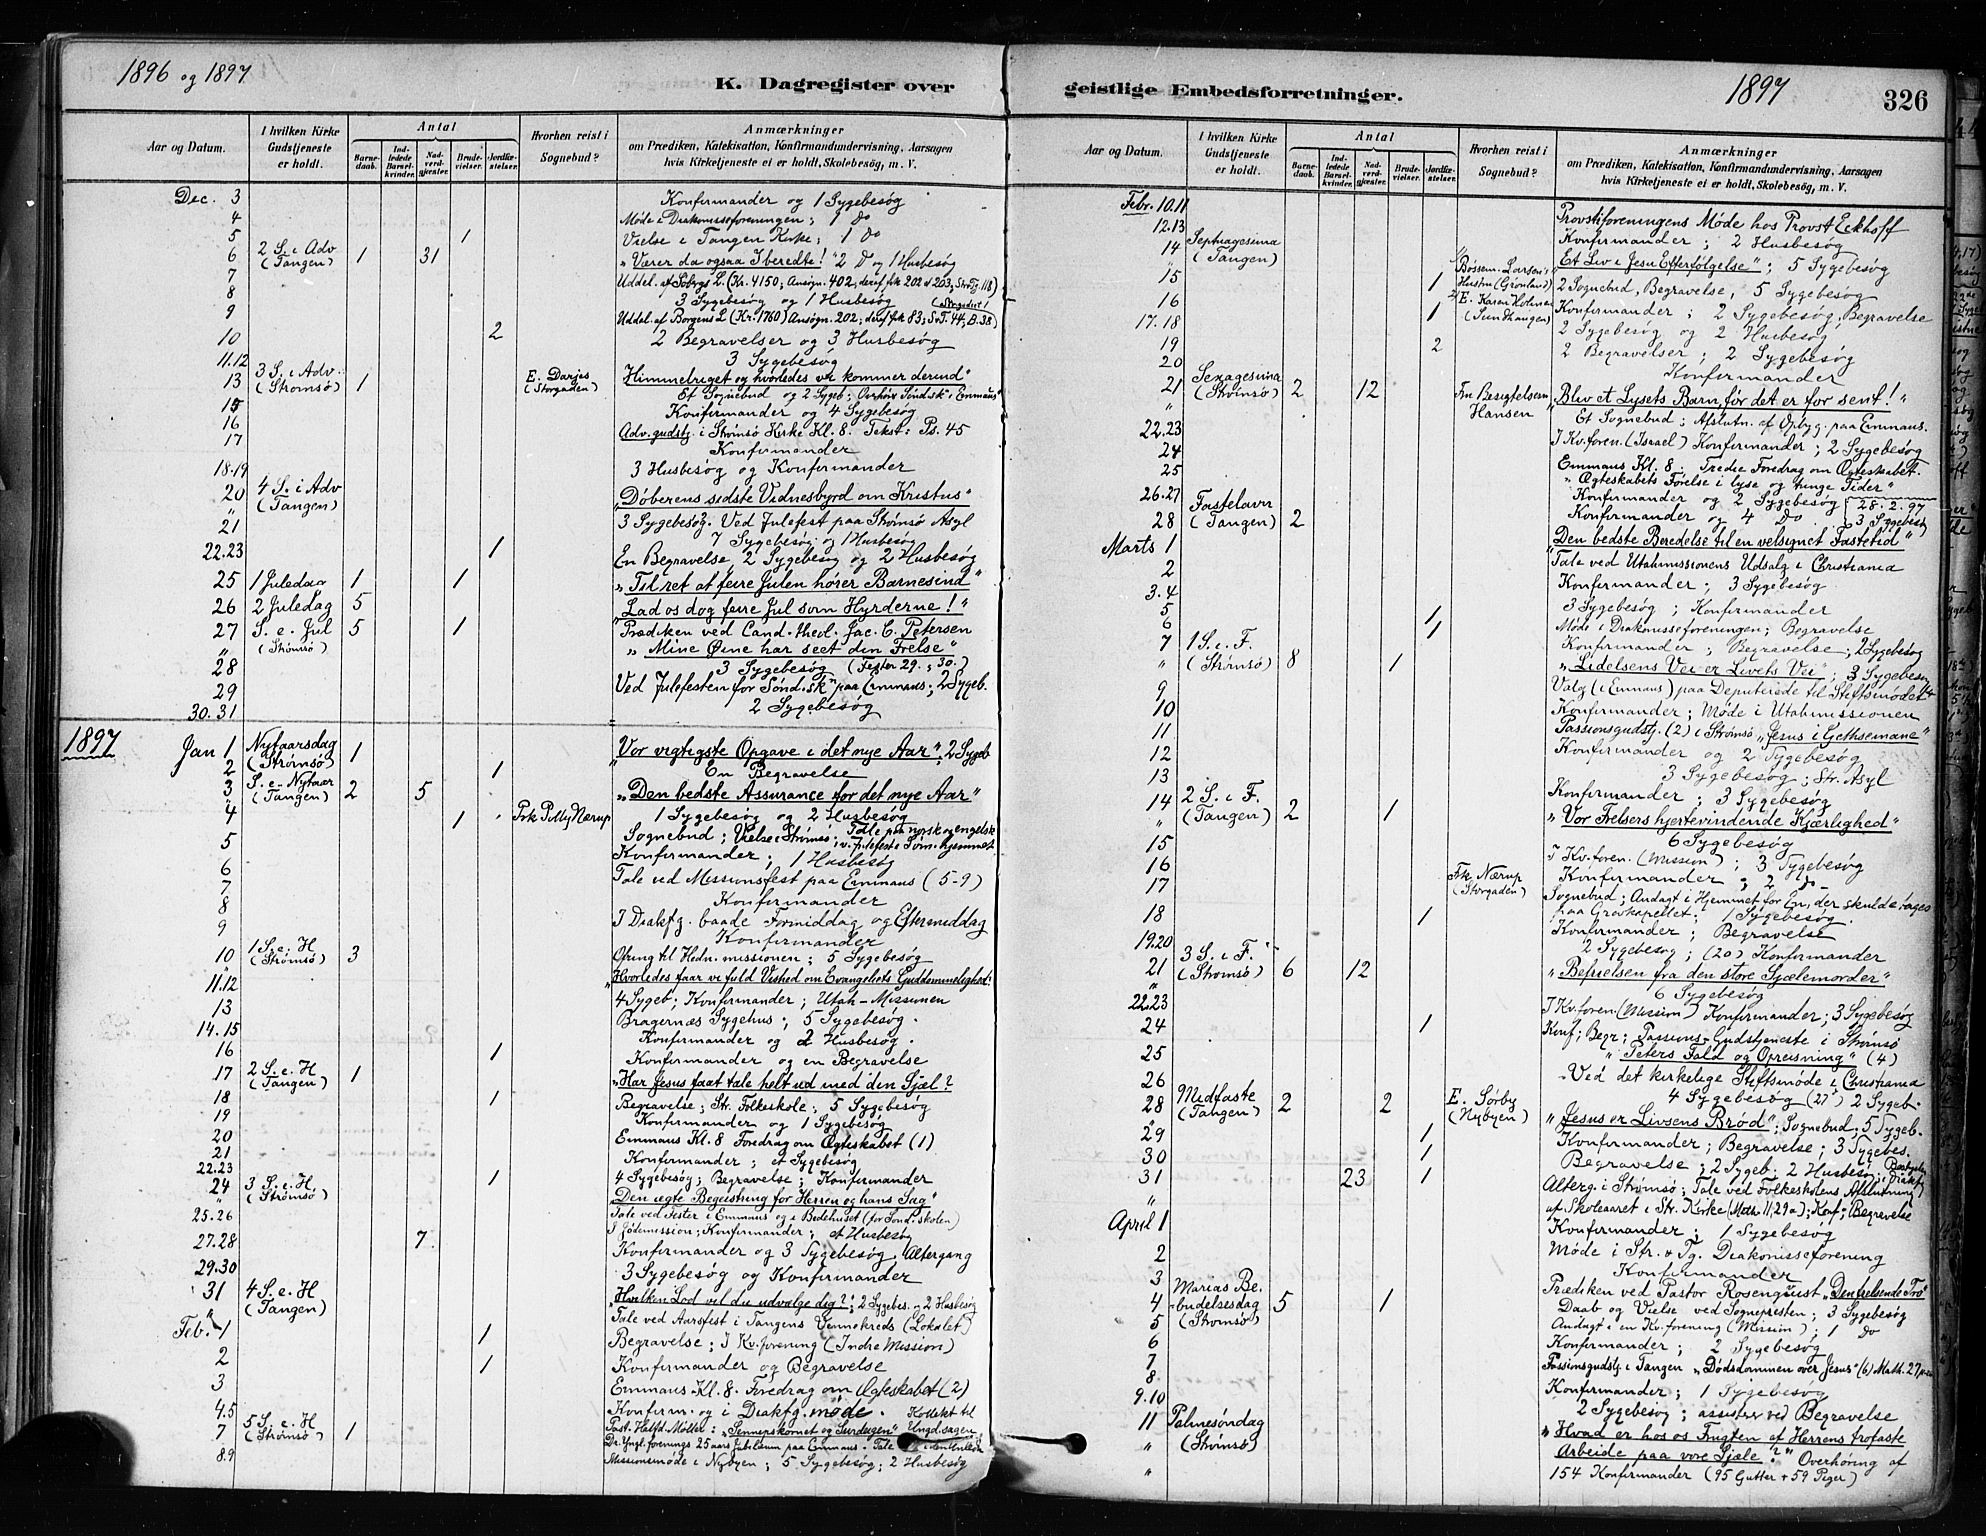 1896 og 1897
K. Dagregister over
Aar og Datum.
I hvilken Kirke Gudstjeneste er holdt.
Antal
Barnedaab.
Indledede Barselkvinder.
Nadverdgjester.
Brudevielser.
Jordfæstelser.
Hvorhen reist i Sognebud?
Anmærkninger
om Prædiken, Katekisation, Konfirmandundervisning, Aarsagen
hvis Kirketjeneste ei er holdt, Skolebesøg, m. V.
Dec. 3 Konfirmander og 1 Sygebesøg
4 Møde i Diakonisseforeningen; 1 Do
5 1 Vielse i Tangen Kirke; 1 Do
6 2 S. i Adv (Tangen) 1 31 „Værer da ogsaa I beredte!" 2 D og 1 Husbesøg
7 Uddel. af Søbergs L. (Kr. 4150; Ansøgn. 402; deraf fik 202
8 3 Sygebesøg og 1 Husbesøg
9 Uddel. af Borgens L (Kr. 1760) Ansøgn. 202; deraf fik 83; S.T. 44; B. 38)
10 2 2 Begravelser og 3 Husbesøg
11.12 3 Sygebesøg
13 3 S. i Adv. (Strømsø) 1 E. Darjes (Storgaden) Himmelriget og hvorledes vi kommer derind"
Et Sognebud og 2 Sygeb; i Emmaus
15 Konfirmander og 4 Sygebesøg
16 Adv. gudstj. i Strømsø Kirke Kl. 8. Tekst: Ps. 45
17 Konfirmander
18.19 3 Husbesøg og Konfirmander
20 4 S. i Adv (Tangen) „Døberens sidste Vidnesbyrd om Kristus"
" 3 Sygebesøg. Ved Julefest paa Strømsø Asyl
21 7 Sygebesøg og 1 Husbesøg
22.23 1 En Begravelse, 2 Sygebesøg og 2 Husbesøg
25 1 Juledag 1 1 „Til ret at feire Julen hører Barnesind"
26 2 Juledag 5 Lad os dog feire Jul som Hyrderne!"
27 S. e. Jul (Strømsø) 5 1 Prædiken ved Cand. theol. Jac. C. Petersen
" „Mine Øine har seet din Frelse"
28 3 Sygebesøg (Fester 29. og 30.)
29 Ved Julefesten for Sønd.sk paa Emmaus; 2 Sygeb.
30.31 2 Sygebesøg
1897 Jan 1 Nytaarsdag (Strømsø) 1 „Vor vigtigste Opgave i det nye Aar"; 2 Sygeb
2 1 En Begravelse
3 S. e. Nytaar (Tangen) 2 5 „Den bedste Assurance for det nye Aar"
" 1 Sygebesøg og 2 Husbesøg
4 1 Frk Polly Nærup Sognebud; Vielse i Strømsø; Tale paa norsk og engelsk v. julefest i Søm.hjemmet
5 Konfirmander; 1 Husbesøg
6 Tale ved Missionsfest paa Emmaus (5-9)
7 Konfirmander
8 I Diakfg. baade Formiddag og Eftermiddag
9 Konfirmander
10 1 S. e. H (Strømsø) 3 Ofring til Hedn. missionen; 5 Sygebesøg
" „Hvorledes faar vi fuld Vished om Evangeliets Guddommelighed?
11.12 4 Sygeb; Konfirmander; Utah-Missionen
13 Bragernæs Sygehus; 5 Sygebesøg.
14.15 Konfirmander og 2 Husbesøg.
16 1 Konfirmander og en Begravelse
17 2 S. e. H (Tangen) 1 „Har Jesus faat tale helt ud med din Sjæl?
18 1 Begravelse; Str. Folkeskole; 5 Sygebesøg
19 Konfirmander og 1 Sygebesøg
20 Emmaus Kl. 8 Foredrag om Ægteskabet (1)
21 Konfirmander; et Sygebesøg
22.23 1 4 Sygebesøg; Begravelse; Konfirmander
24 3 S. e. H. (Strømsø) Den ægte Begeistring for Herren og hans Sag"
" Tale ved Fester i Emmaus og i Bedehuset (for Sønd. skolen)
25.26 I Jødemission; Konfirmander; et Husbesøg
27.28 7 Konfirmander og 3 Sygebesøg, Altergang
29.30 3 Sygebesøg og Konfirmander
31 4 S. e. H (Tangen) „Hvilken Lod vil du udvælge dig?"; 2 Sygebes. og 2 Husbesøg
" Tale ved Aarsfest i Tangens Vennekreds (Lokalet)
Feb. 1 1 Begravelse; I Kv.forening (Indre Mission)
2 1 Konfirmander og Begravelse
3 Emmaus Kl. 8. Foredrag om Ægteskabet (2)
4.5 Konfirm. og i Diakfg. møde. Kollekt til
7 5 S. e. H (Strømsø) 1 Past. Halfd. Møller: „Sennepskornet og Surdeigen" Ungd.sagen
Dr. Yngl.forenings 25 aars Jubilæum paa Emmaus. Tale
8.9 Missionsmøde i Nybyen; 5 Sygebesøg; 2 Husbesøg
geistlige Embedsforretninger.
1897
326
Aar og Datum.
I hvilken Kirke Gudstjeneste er holdt.
Antal
Barnedaab.
Indledede Barselkvinder.
Nadverdgjester.
Brudevielser.
Jordfæstelser.
Hvorhen reist i Sognebud?
Anmærkninger
om Prædiken, Katekisation, Konfirmandundervisning, Aarsagen
hvis Kirketjeneste ei er holdt, Skolebesøg, m. V.
Febr. 10.11 Provstiforeningens Møde hos Provst Eckhoff
12.13 Konfirmander; 2 Husbesøg
14 Septuagesima (Tangen) „Et Liv i Jesu Efterfølgelse"; 5 Sygebesøg
15 1 Bøssem. Larsens Hustru (Grønland) 2 Sognebud, Begravelse, 5 Sygebesøg
16 1 E. Karen Holmen (Sundhaugen) Konfirmander; 2 Sygebesøg, Begravelse
17.18 2 Sygebesøg og 2 Husbesøg
19 2 2 Begravelser; 2 Sygebesøg
20 Konfirmander
21 Sexagesima (Strømsø) 2 12 Hansen „Bliv et Lysets Barn, før det er for sent!"
" Et Sognebud; Afslutn. af Opbyg. paa Emmaus.
22.23 I Kv.foren. (Israel) Konfirmander; 2 Sygebesøg
24 Emmaus Kl. 8. Tredie Foredrag om Ægteskabet.
„Ægteskabets Førelse i lyse og tunge Tider"
25 Konfirmander og 2 Sygebesøg
26.27 Konfirmander og 4 Do
28 Fastelavn (Tangen) 2 28.2.97 3 Sygebesøg
„Den bedste Beredelse til en velsignet Fastetid"
Marts 1 Tale ved Utahmissionens Udsalg i Christiania
2 Konfirmander; 3 Sygebesøg
3.4 3 Sygebesøg; Konfirmander
5 1 Møde i Diakonisseforeningen; Begravelse
6 1 Konfirmander; Begravelse; 2 Sygebesøg
7 1 S. i F. (Strømsø) 8 1 „Lidelsens Vei er Livets Vei"; 3 Sygebesøg
" Valg (i Emmaus) paa Deputerede til Stiftsmødet
9 Konfirmander; Møde i Utahmissionen
10 Passionsgudstj. (2) i Strømsø „Jesus i Gethsemane"
11 Konfirmander og 2 Sygebesøg
12 3 Sygebesøg; Str. Asyl
13 Konfirmander; 3 Sygebesøg
14 2 S. i F. (Tangen) 2 1 „Vor Frelsers hjertevindende Kjærlighed"
" 6 Sygebesøg
15 I Kv.foren. (Mission); 3 Sygebesøg
16 Konfirmander; 2 do
17 Frk. Nærup (Storgaden) Sognebud; Andagt i Hjemmet for En, der skulde tages paa Gravkapellet; 1 Sygebesøg.
18 1 Konfirmander; Begravelse
19.20 2 Sygebesøg; (20) Konfirmander
21 3 S. i F. (Strømsø) 6 12 „Befrielsen fra den store Sjælemorder"
" 6 Sygebesøg
22.23 I Kv.foren (Mission) Konfirmander; 3 Sygebesøg
24 1 Konf; Begr; Passions-Gudstjeneste i Strømsø
„Peters Fald og Opreisning" (4)
25
26 Ved det kirkelige Stiftsmøde i Christiania
4 Sygebesøg (27") 2 Sygeb.
28 Midfaste (Tangen) 2 2 E. Sørby (Nybyen) „Jesus er Livsens Brød"; Sognebud; 5 Sygeb.
29 1 Konfirmander; Begravelse; 3 Sygebes.
30 1 Begravelse; 2 Sygeb. 2 Husbesøg;
31 23 1 Alterg. i Strømsø; Tale ved Folkeskolens Afslutning
" af Skoleaaret i Str. Kirke (Math. 11,29a); Konf; Begravelse
April 1 Konfirmander; 1 Sygebesøg
2 Møde i Str. & Tg. Diakonisseforening
3 Konfirmander
4 Marias Bebudelsesdag (Strømsø) 5 1 Prædiken ved Pastor Rosenquist „Den frelsende Tro"
Daab og Vielse ved Sognepresten; 3 Sygebesøg
5 Andagt i en Kv.forening (Mission); 1 do
6 Konfirmander; 2 Sygebesøg
7 Passionsgudstj. i Tangen „Dødsdommen over Jesus" (6) Math. 27
8 Konfirmander; 1 Sygebesøg
9.10 2 Sygebesøg; assisterer ved Begravelse
11 Palmesøndag (Strømsø) „Hvad er hos os Frugten af Herrens trofaste
" Arbeide paa vore Sjæle?" Overhøring af
" 154 Konfirmander (95 Gutter + 59 Piger)